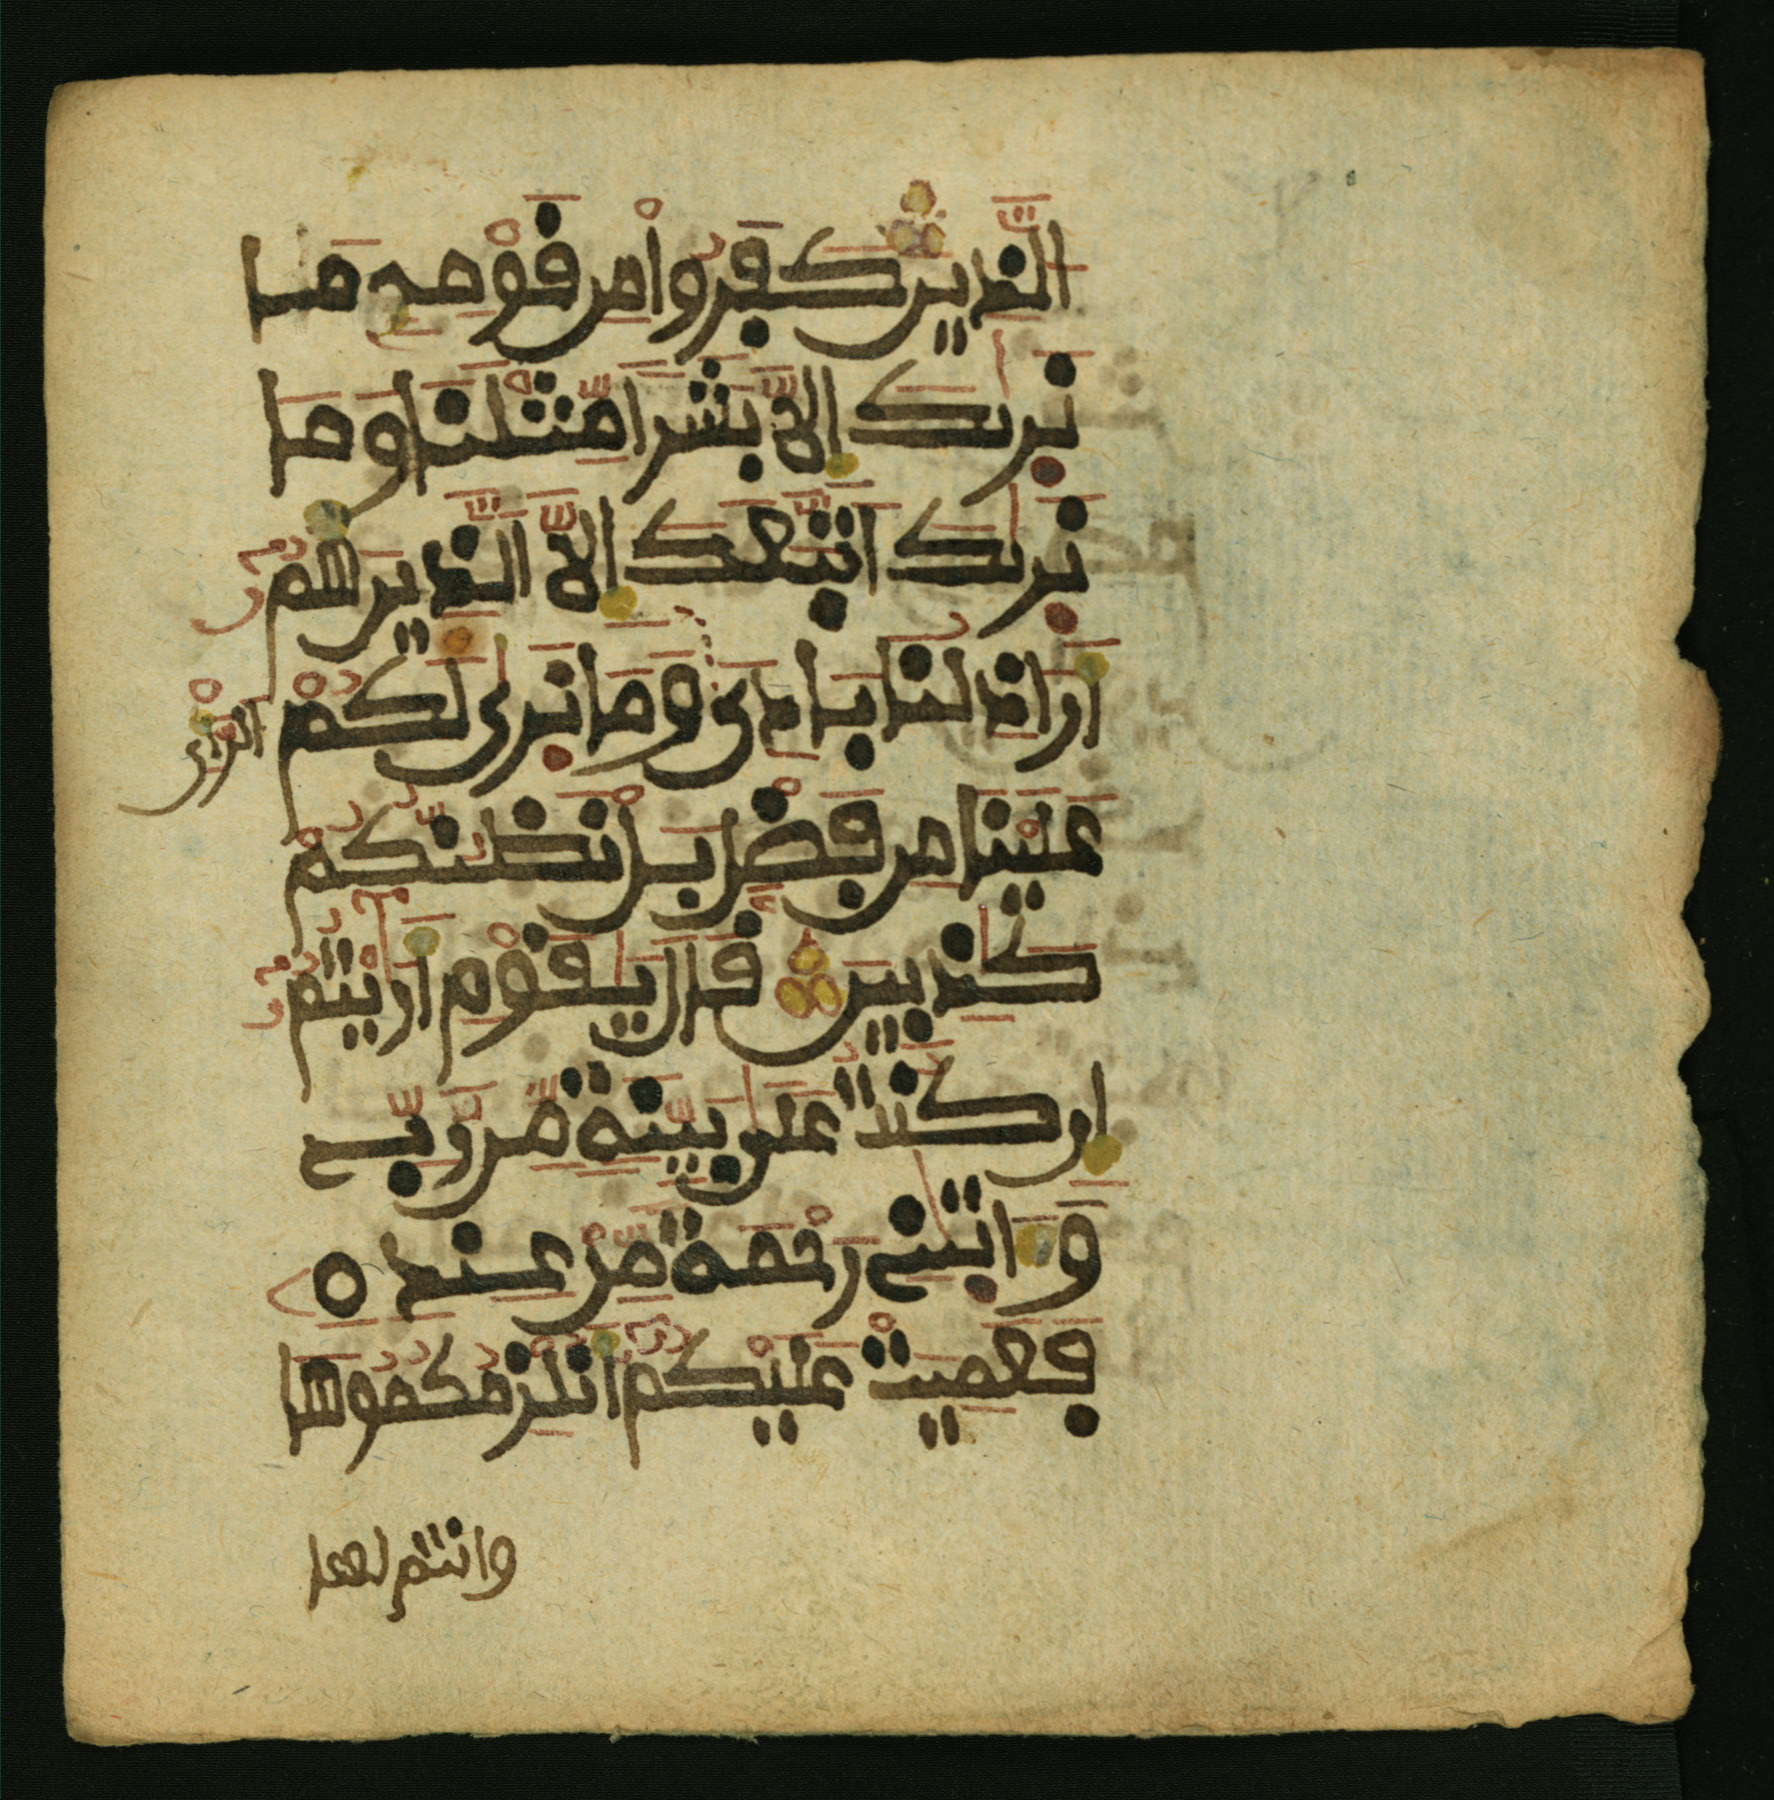 الذين كفروا من قومه ما
نريك إلا بشرا مثلنا وما
نريك اتبعك إلا الذين هم
أراذلنا بادي وما نرى لكم
الرأي
علينا من فضل بل نظنكم
كذبين قال يقوم أريتم
إن كنت على بينة من ربي
وءاتيني رحمة من عنده
فعميت عليكم أنلزمكموها
وانتم لها